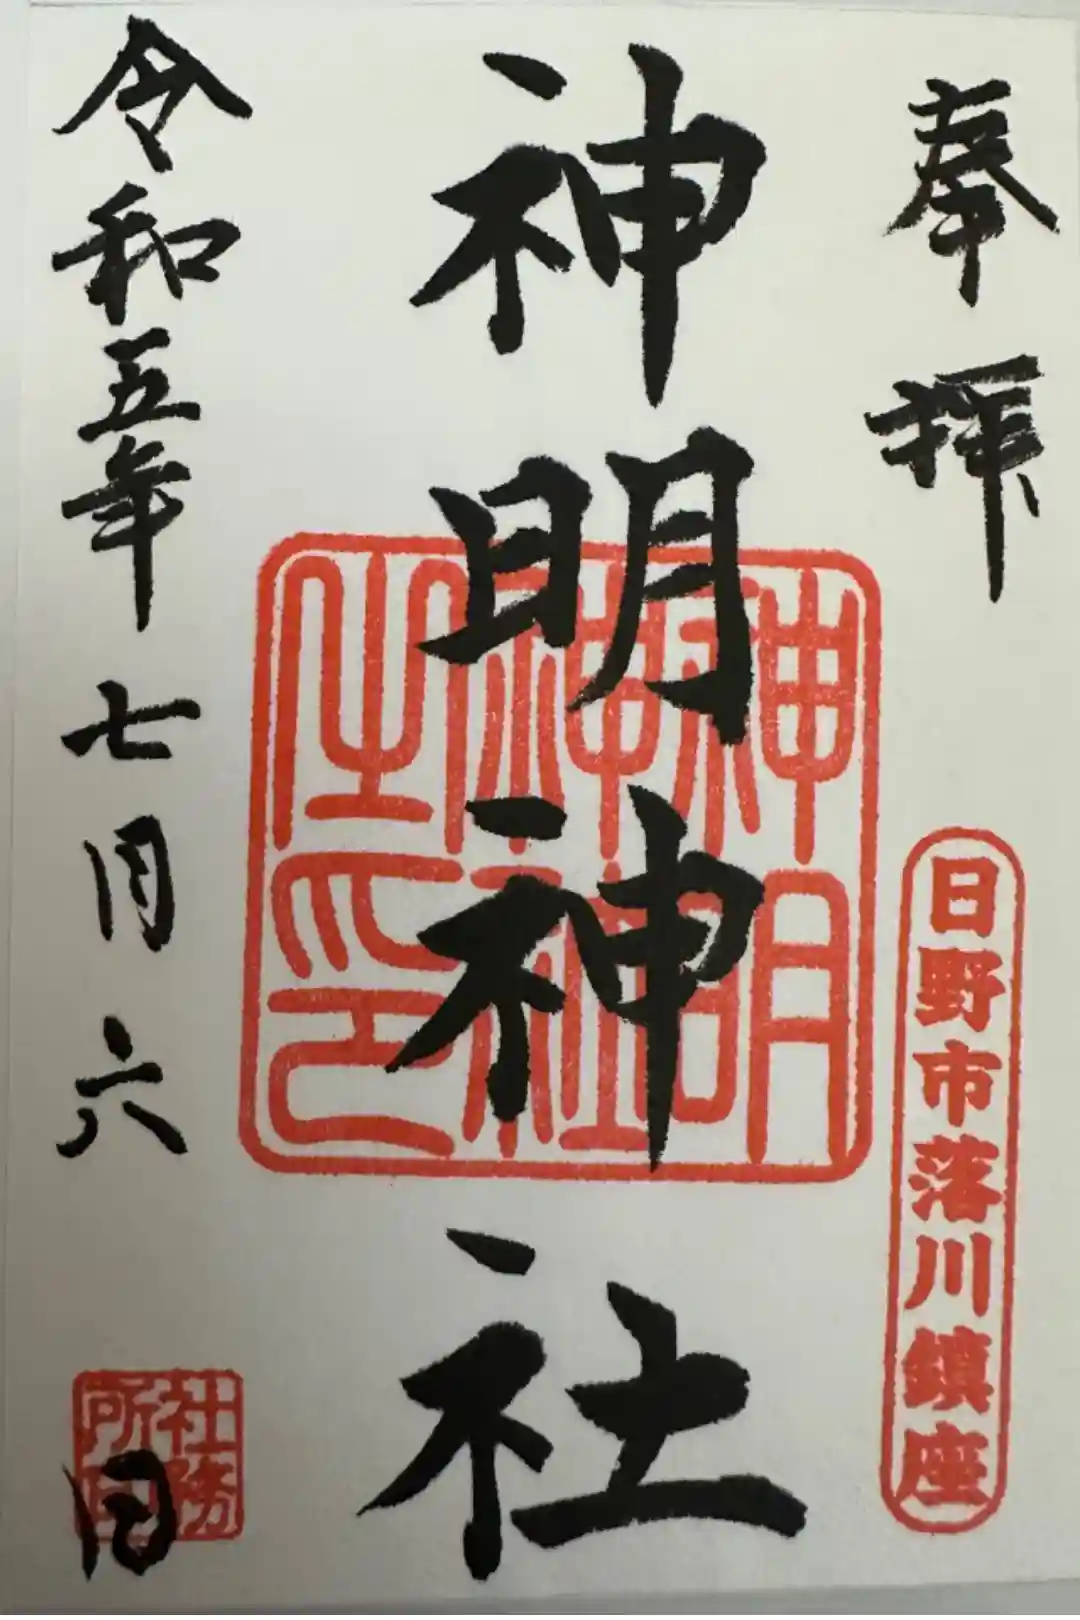 奉拝
日野市落川鎮座
神明神社
神明神社之印
令和五年七月六日
社務所印